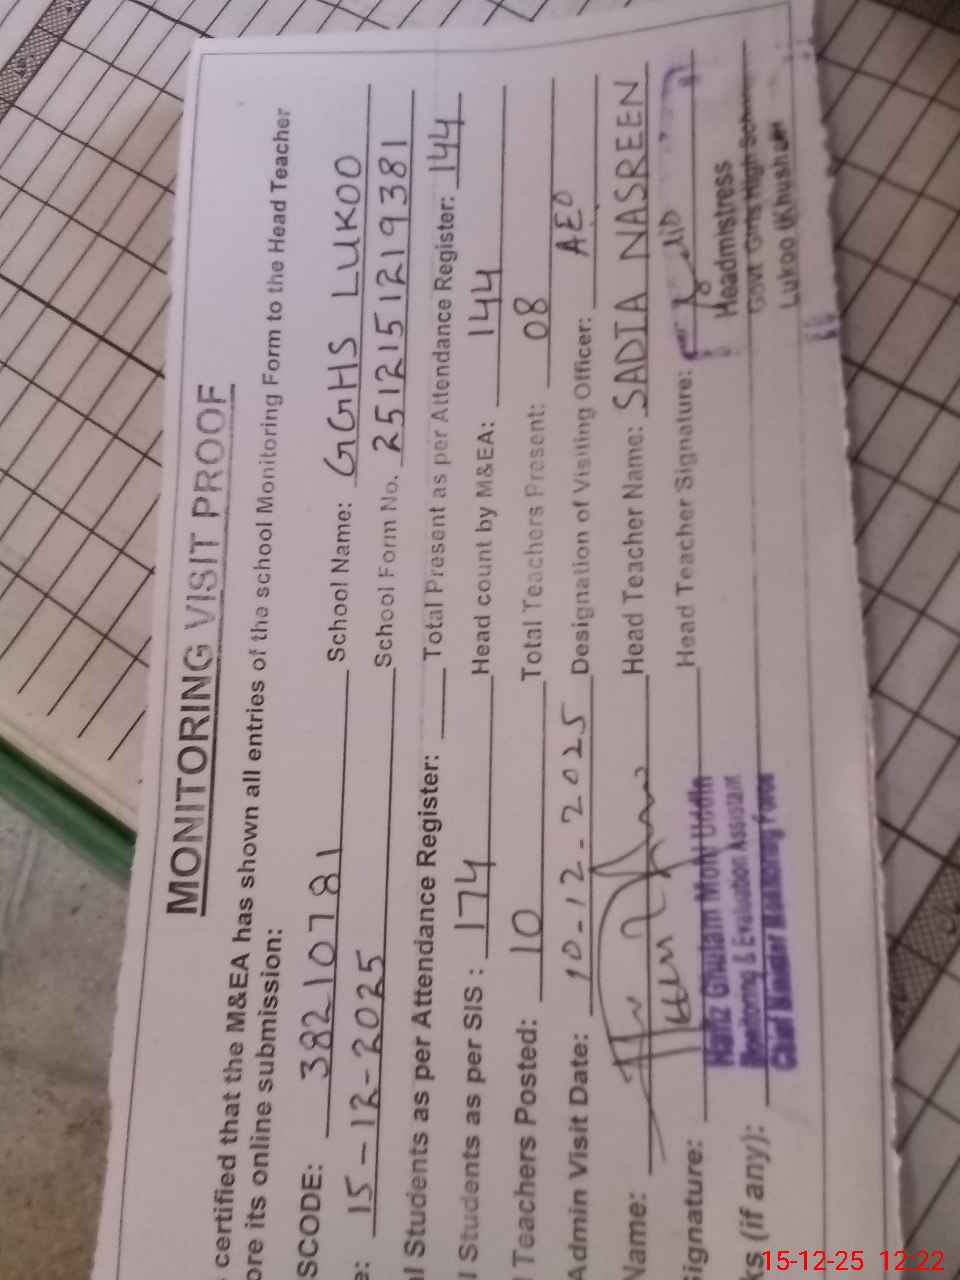 MONITORING VISIT PROOF
certified that the M&EA has shown all entries of the school Monitoring Form to the Head Teacher
ore its online submission:
SCODE: 38210781 School Name: GGHS LUKOO
e: 15-12-2025 School Form No. 251215121938 1
l Students as per Attendance Register: Total Present as per Attendance Register: 144
l Students as per SIS: 174 Head count by M&EA: 144
l Teachers Posted: 10 Total Teachers Present: 08
Admin Visit Date: 10-12-2025 Designation of Visiting Officer: AEO
Name: Head Teacher Name: SADIA NASREEN
Signature: Head Teacher Signature:
Hafiz Ghulam Mohi Uddin
Monitoring & Evaluation Assistant
Chief Minister Monitoring Force
Headmistress
Govt Girls High School
Lukoo (Khushab)
ks (if any):
15-12-25 12:22